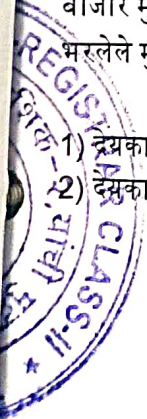 बाजार मु
भरलेले मु
1) देयका
2) देयका
REGISTRAR CLASS-II